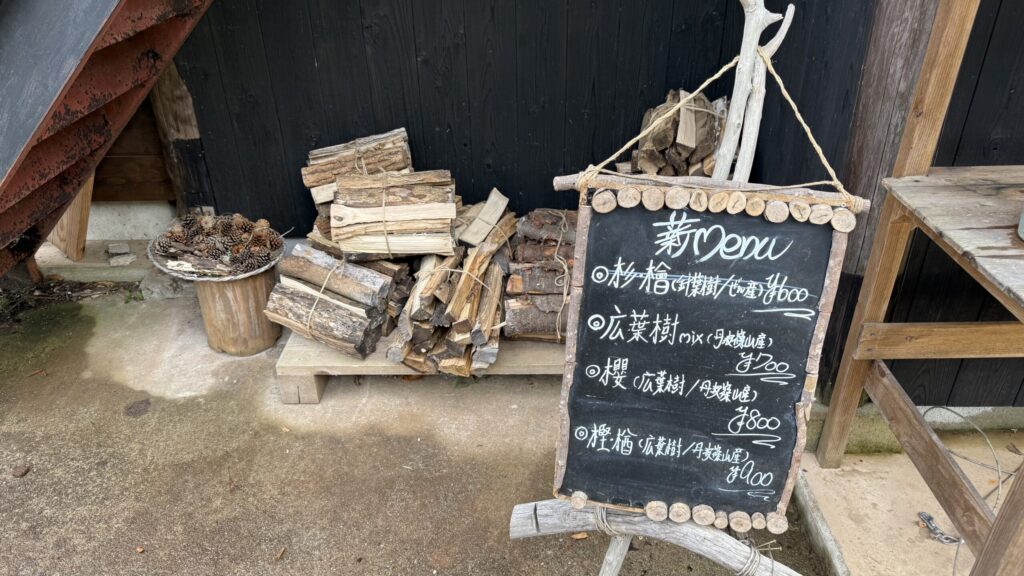 薪Menu
◎杉檜(針葉樹/ ¥600
◎広葉樹mix(丹波篠山産)
¥700
◎櫻(広葉樹/丹波篠山産)
¥800
◎樫・楢(広葉樹/丹波篠山産)
¥900